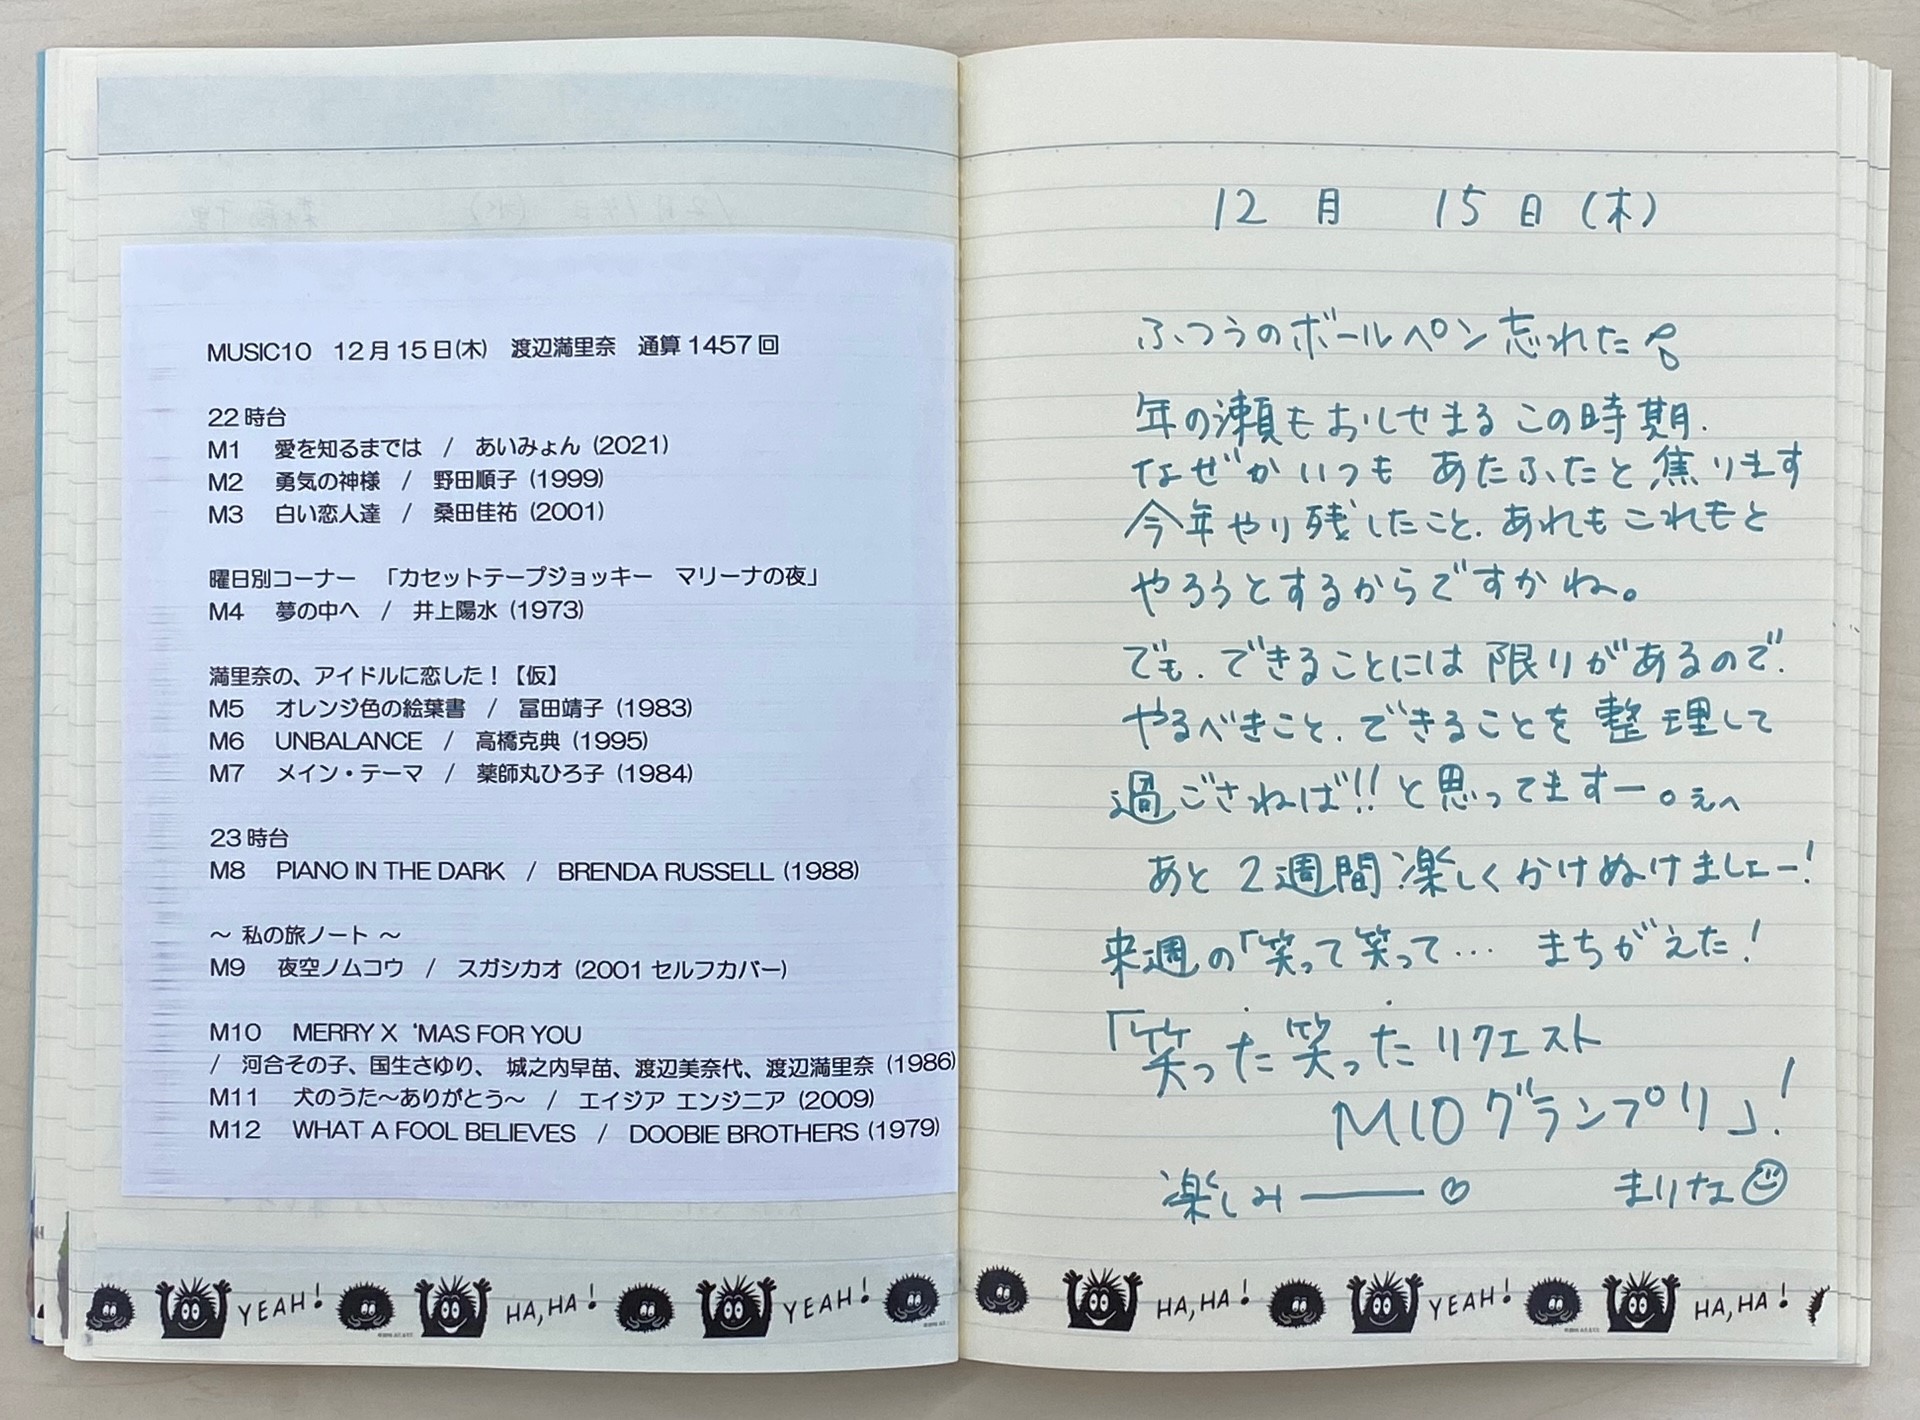 MUSIC10　12月15日(木)　渡辺満里奈　通算1457回
22時台
M1　愛を知るまでは　/　あいみょん (2021)
M2　勇気の神様　/　野田順子 (1999)
M3　白い恋人達　/　桑田佳祐 (2001)
曜日別コーナー　「カセットテープジョッキー　マリーナの夜」
M4　夢の中へ　/　井上陽水 (1973)
満里奈の、アイドルに恋した！【仮】
M5　オレンジ色の絵葉書　/　冨田靖子 (1983)
M6　UNBALANCE　/　高橋克典 (1995)
M7　メイン・テーマ　/　薬師丸ひろ子 (1984)
23時台
M8　PIANO IN THE DARK　/　BRENDA RUSSELL (1988)
～ 私の旅ノート ～
M9　夜空ノムコウ　/　スガシカオ (2001 セルフカバー)
M10　MERRY X ‘MAS FOR YOU
/　河合その子、国生さゆり、 城之内早苗、渡辺美奈代、渡辺満里奈 (1986)
M11　犬のうた～ありがとう～　/　エイジア エンジニア (2009)
M12　WHAT A FOOL BELIEVES　/　DOOBIE BROTHERS (1979)
YEAH! HA, HA! YEAH!
12月　15日(木)
ふつうのボールペン忘れた
年の瀬もおしせまるこの時期.
なぜかいつも あたふたと焦ります
今年やり残したこと. あれもこれもと
やろうとするからですかね。
でも. できることには 限りがあるので.
やるべきこと. できることを 整理して
過ごさねば!! と思ってますー。えへ
あと2週間 楽しくかけぬけましょー!
来週の「笑って笑って… まちがえた!
「笑った笑った リクエスト
M10グランプリ」!
楽しみ―――♡　まりな
HA, HA! YEAH! HA, HA!